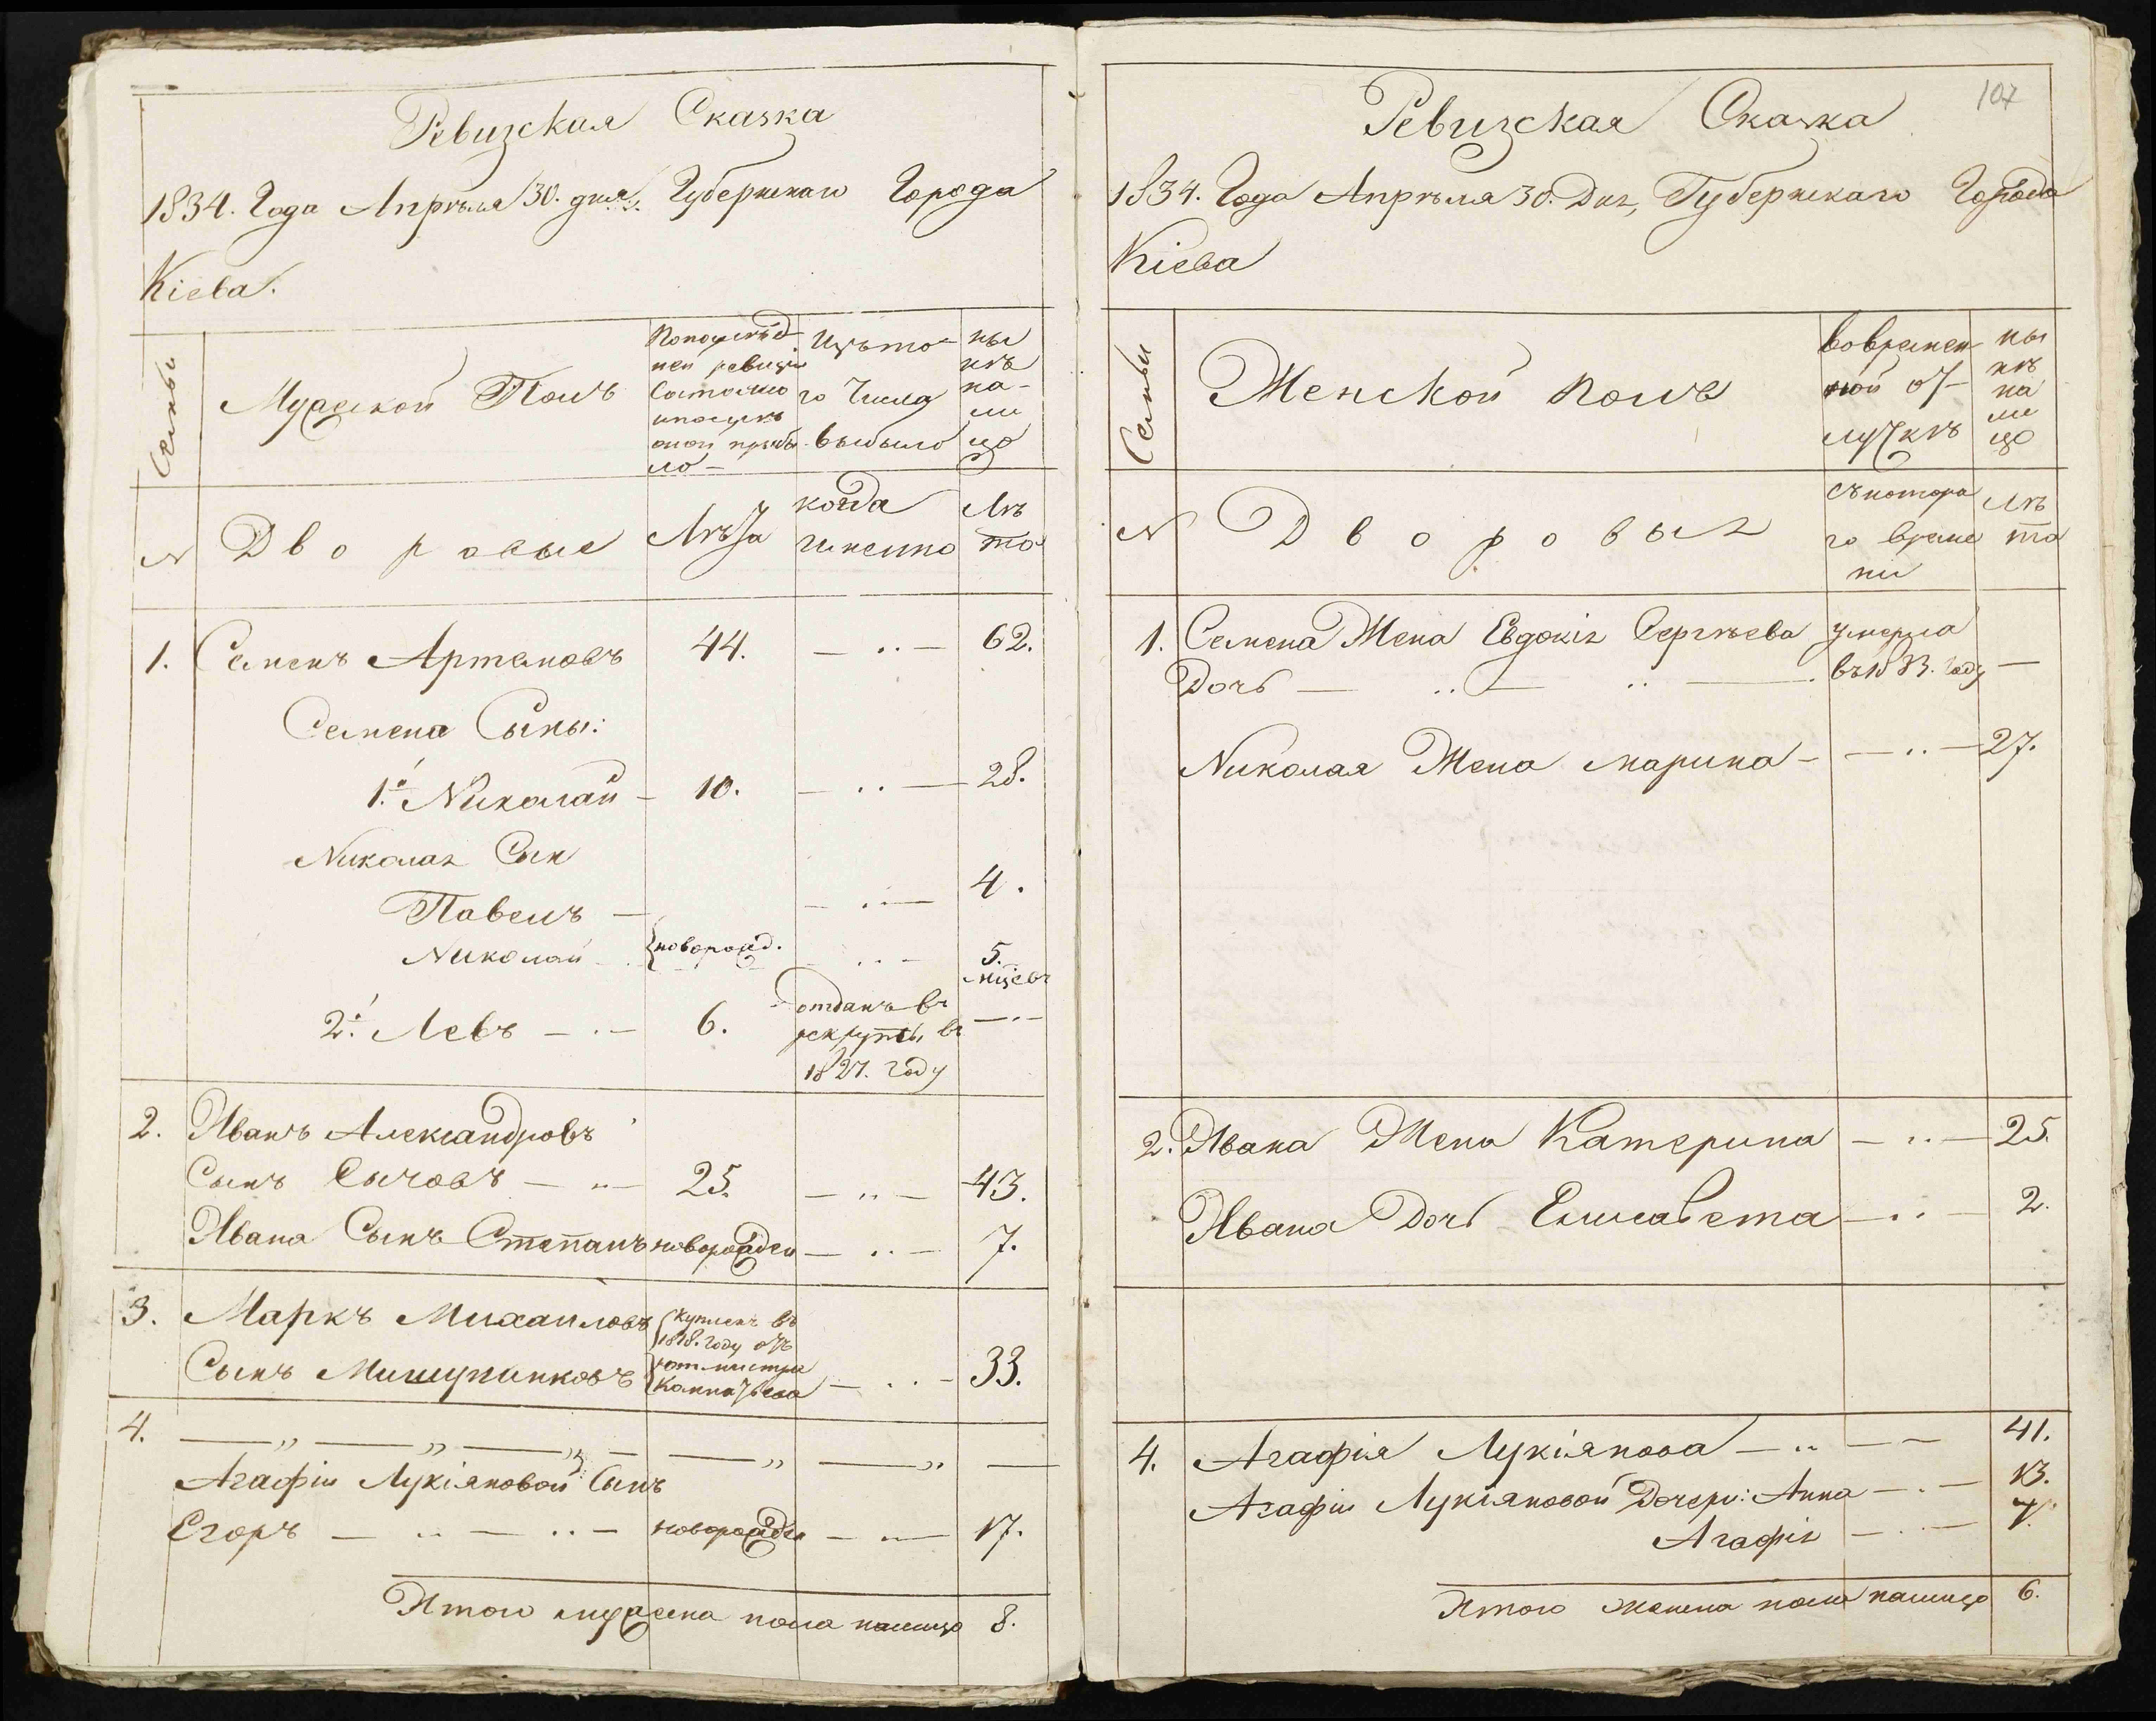 Ревизская Сказка
1834. Года Апрѣля 30. дня. Губернскаго Города
Кіева.
Семьи
Мужеской Полъ
Попослѣд
ней ревизіи
состояло
ипослѣ
оной прибы
ло
Изъто
го Числа
выбыло
ны
нѣ
на-
ли
цо
№
Дворовые
Лѣта
когда
имянно
Лѣ
та
1. Семенъ Артемовъ 44. 62.
Семена Сыны:
1й Николай 10. 28.
Николая Сын
Павелъ 4.
Николай новорожд. 5.
мцевъ
2й Левъ 6. отданъ въ
рекруты, въ
1827. году
2. Иванъ Александровъ
Сынъ Сычовъ 25. 43.
Ивана Сынъ Степанъ новорожден 7.
3. Маркъ Михаиловъ купленъ въ
1818. году отъ
ротмистра
Сынъ 33.
4.
Агафіи Лукіяновой Сынъ
Егоръ новорожден 17.
Итого мужеска пола налицо 8.
107
Ревизская Сказка
1834. Года Апрѣля 30. Дня, Губернскаго Города
Кіева
Семьи
Женской полъ
вовремен
ной от
лучкѣ
ны
нѣ
на
ли
цо
№
Дворовыя
Съкотора
го време
ни
Лѣ
та
1. Семена Жена Евдокія Сергѣева умерла
Дочь въ 1833. году
Николая Жена марина 27.
2. Ивана Жена Катерина 25.
Ивана Дочь Елисавета 2.
4. Агафія Лукіянова 41.
Агафіи Лукіяновой Дочери: Анна 13.
Агафія 7.
Итого женска пола налицо 6.